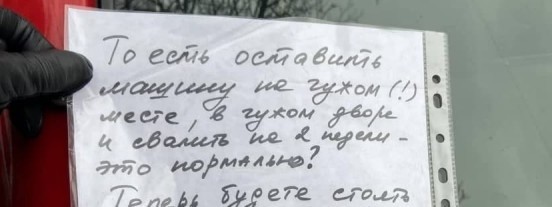 То есть оставить
машину на чужом (!)
месте, в чужом дворе
и свалить на 2 недели -
это нормально?
Теперь будете стоять